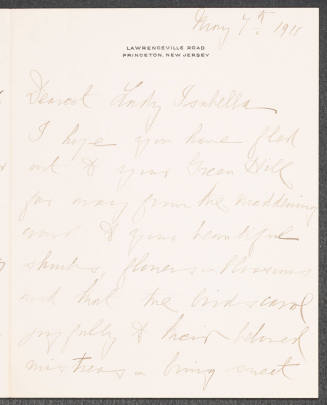 May 7th. 1911
LAWRENCEVILLE ROAD
PRINCETON, NEW JERSEY
Dearest Lady Isabella
I hope you have fled
out to your Green Hill
far away from the maddening
crowd to your beautiful
shrubs, flowers & blossoms
and that the birds carol
joyfully to their beloved
mistress & bring sweet